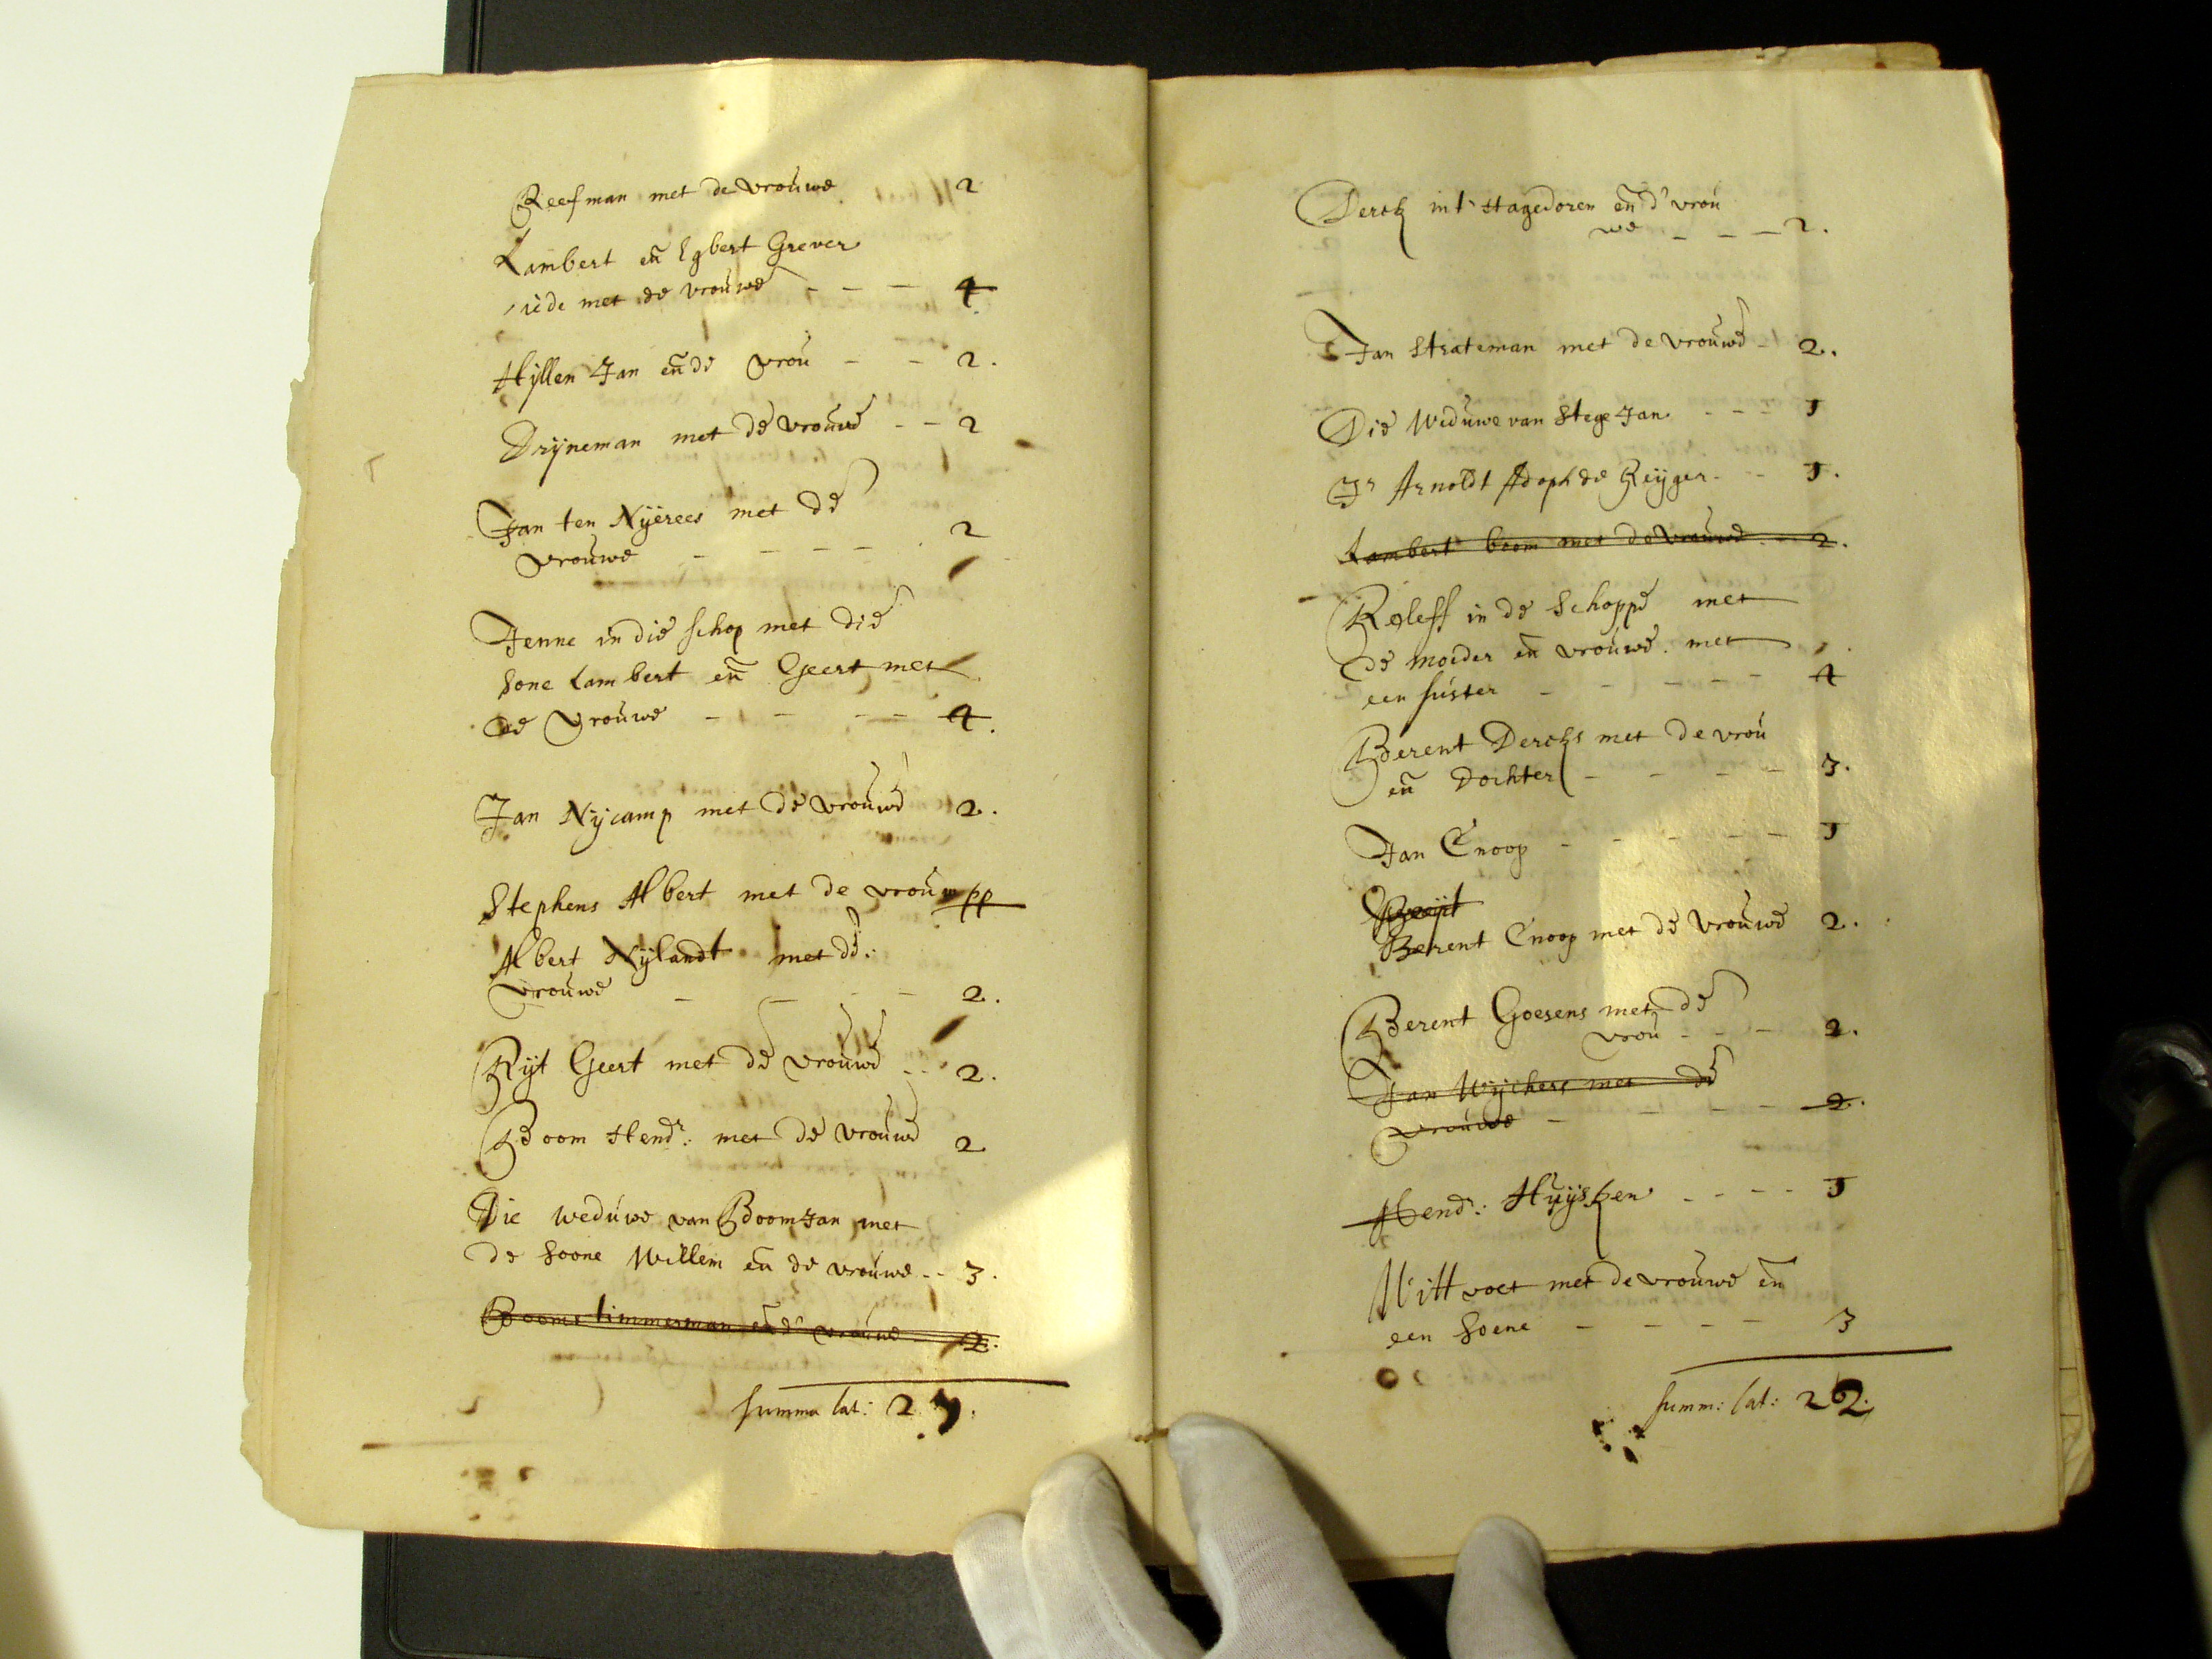 Reefman met de vrouwe 2
Lambert eñ Egbert Grever
met de vrouwe - - - 4
Hyllen Jan eñ de vrou - - 2.
Drÿneman met de vrouwe - - 2
Jan ten Nÿerees met de
vrouwe - - - - 2
Jenne in die schop met die
sone Lambert eñ Geert met
de vrouwe - - - - 4.
Jan Nÿcamp met de vrouwe 2.
Stephens Albert met de vrouw pp
Albert Nÿlandt met de:
vrouwe - - - - 2.
Rÿt Geert met de vrouwe - - 2.
Boom Hendr: met de vrouwe 2
Die weduwe van Boom Jan met
de soone Willem eñ de vrouwe - - 3.
Booms timmerman eñ d' vrouwe 2.
summa lat: 27.
Derck int Hagedoren eñ d' vrou
we - - - 2.
Jan Strateman met de vrouwe - 2.
Die Weduwe van Stege Jan - - - 1
Jr Arnoldt Adoph de Reÿger - - 1.
Lambert boom met de vrouwe - - 2.
Roleff in de Schoppe met
de moeder eñ vrouwe met
een suster - - - - - 4
Berent Dercks met de vrou
eñ dochter - - - - 3.
Jan Cnoop - - - - - 1
Berent Cnoop met de vrouwe 2.
Berent Goesens met de
vrou - - - 2.
Jan Wÿchers met de
vrouwe - - - - - 2.
Hendr: Huÿsken - - - - 1
Witt voet met de vrouwe eñ
een soene - - - - 3
summ: lat: 22.